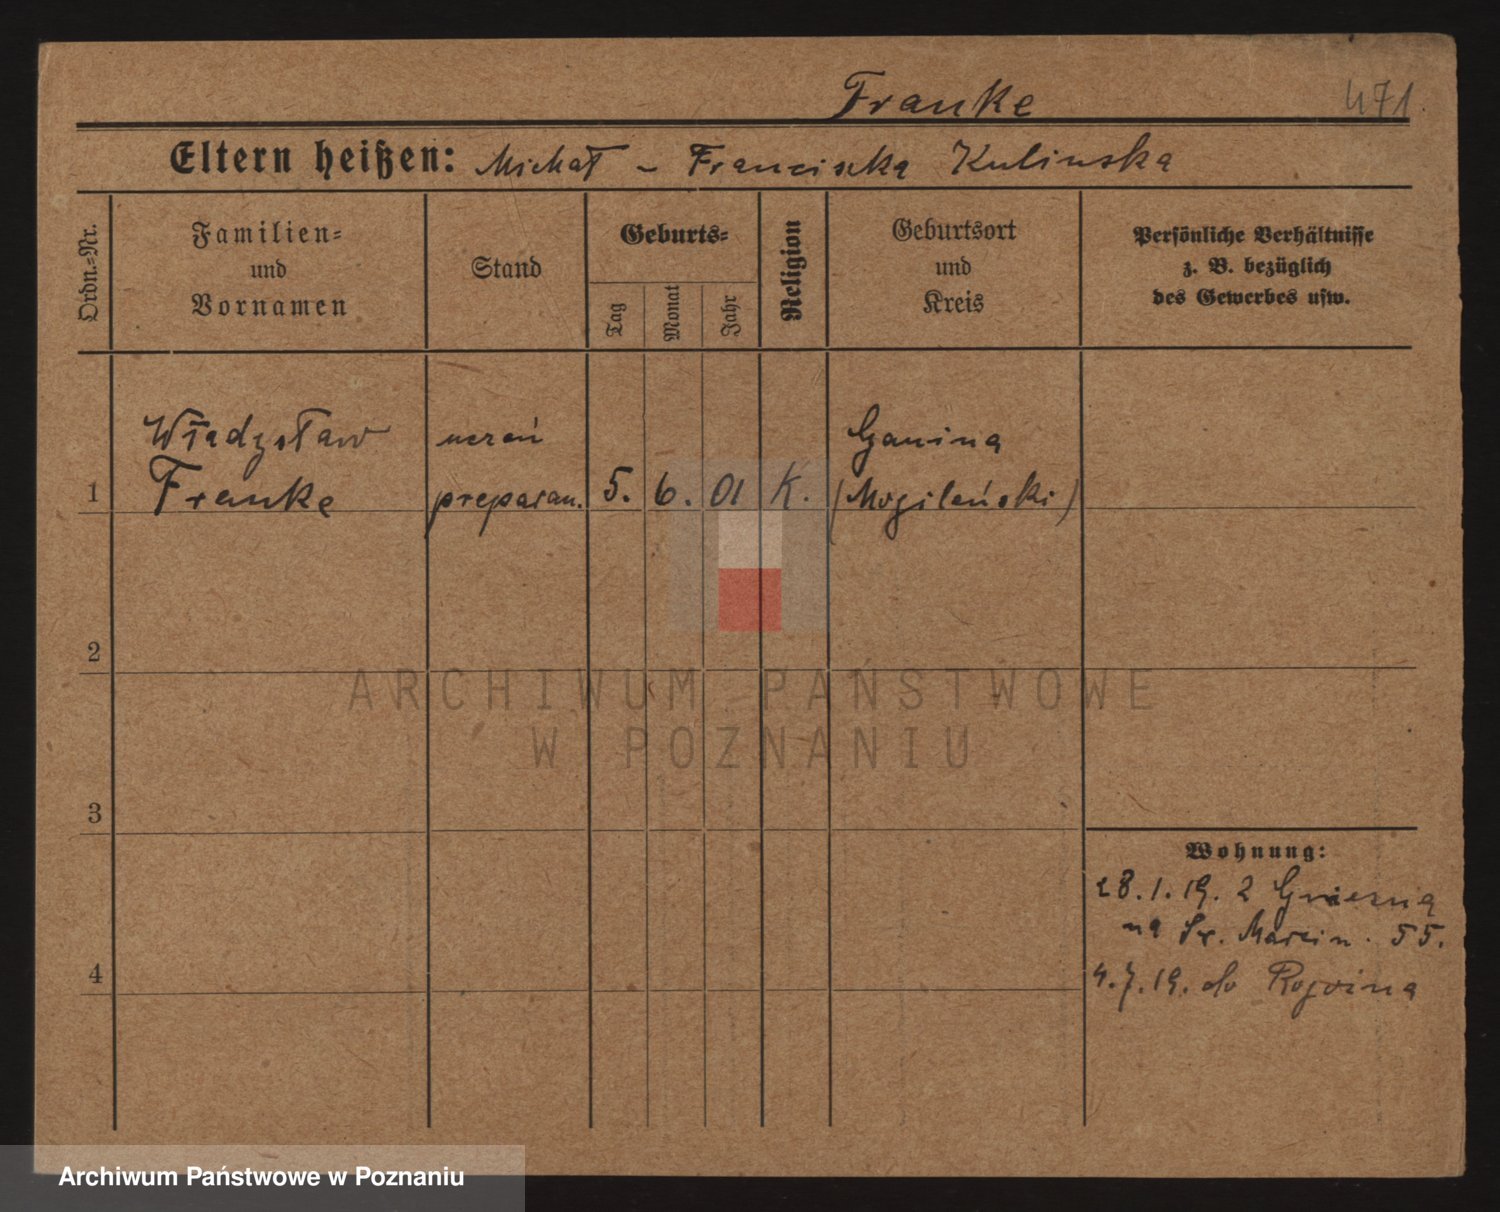 Franke
471
Eltern heißen: Michał – Franciszka Kulinska
Ordn.=Nr.
Familien=
und
Vornamen
Stand
Geburts=
Tag
Monat
Jahr
Religion
Geburtsort
und
Kreis
Persönliche Verhältnisse
z. B. bezüglich
des Gewerbes usw.
Władysław uczeń Ganina
1 Franke preparan. 5. 6. 01 K. (Mogileński)
2
3
4
Wohnung:
28.1.19. z Gniezna
na Św. Marcin. 55.
4.7.19. do
ARCHIWUM PAŃSTWOWE
W POZNANIU
Archiwum Państwowe w Poznaniu